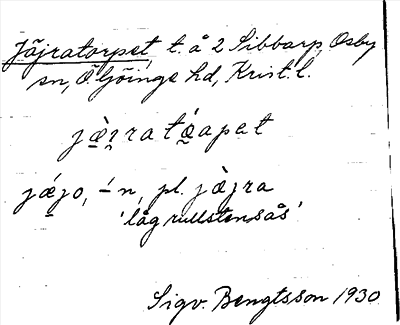 Jäjratorpet t. å 2 Sibbarp, Osby
sn, Ö Göinge hd, Krist. l.
jæ̀i̯ratǿapet
jǽjo, -́n, pl. jæ̀jra
'låg rullstensås'
Sigv. Bengtsson 1930